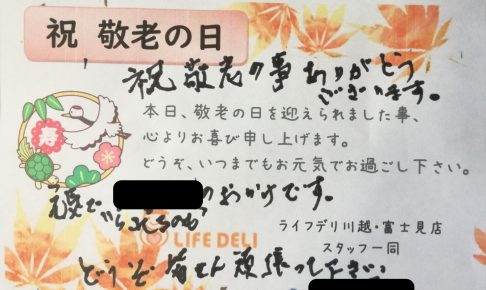 祝 敬老の日
祝敬老の事ありがとう
ございます。
本日、敬老の日を迎えられました事、
心よりお喜び申し上げます。
どうぞ、いつまでもお元気でお過ごし下さい。
寿
元気で
のおかげです。
ライフデリ川越・富士見店
スタッフ一同
LIFE DELI
どうぞ皆さん頑張って下さい